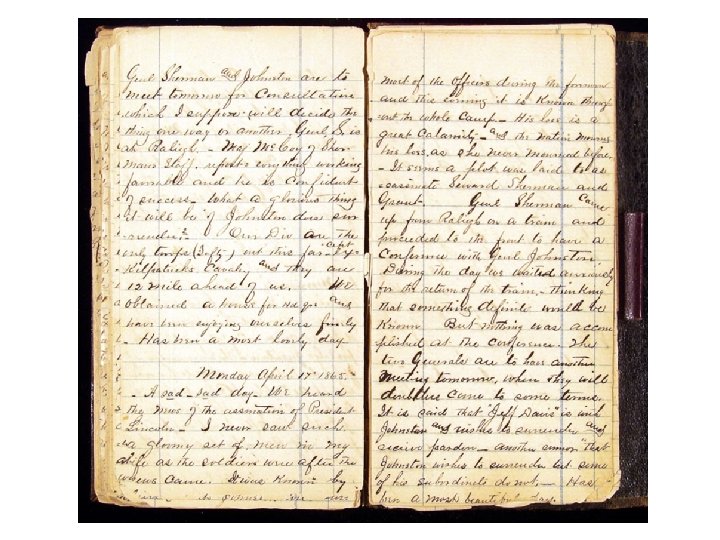 Genl Sherman and Johnston are to
meet tomorrow for Consultation
which I suppose will decide the
thing one way or another. Genl S. is
at Raligh. - Maj McCoy of Sher-
mans Staff, reports everything working
favorable and he is Confident
of success - What a glorious thing
it will be if Johnston does sur
render. - Our Div are the
only troops (Infty) out this far - except
Kilpatricks Cavalry and they are
12 mile ahead of us. We
obtained a house for Hd qrs and
have been enjoying ourselves finely
- Has been a most lovely day
Monday April 17" 1865.
- A sad - sad day - We heard
the news of the assination of President
Lincoln - I never saw such
a gloomy set of men in my
life as the soldiers were after the
news came. It was Known by
most of the Officers during the forenoon
and this evening it is Known through
out the whole Camp - His loss is a
great Calamity - and the nation mourns
his loss, as she never mourned before.
- It seems a plot was laid to as
sassinate Seward Sherman and
Grant. Genl Sherman Came
up from Raligh on a train and
proceeded to the front to have a
Conference with Genl Johnston.
During the day we waited anxiously
for the return of the train - thinking
that something definite would be
Known. But nothing was accom
plished at the Conference. The
two Generals are to have another
Meeting tomorrow, when they will
doubtless Come to some terms.
It is said that "Jeff Davis" is with
Johnston and wishes to surrender and
receive pardon - another rumor "that
Johnston wishes to surrender but some
of his Subordinets do not. - Has
been a most beautiful day.